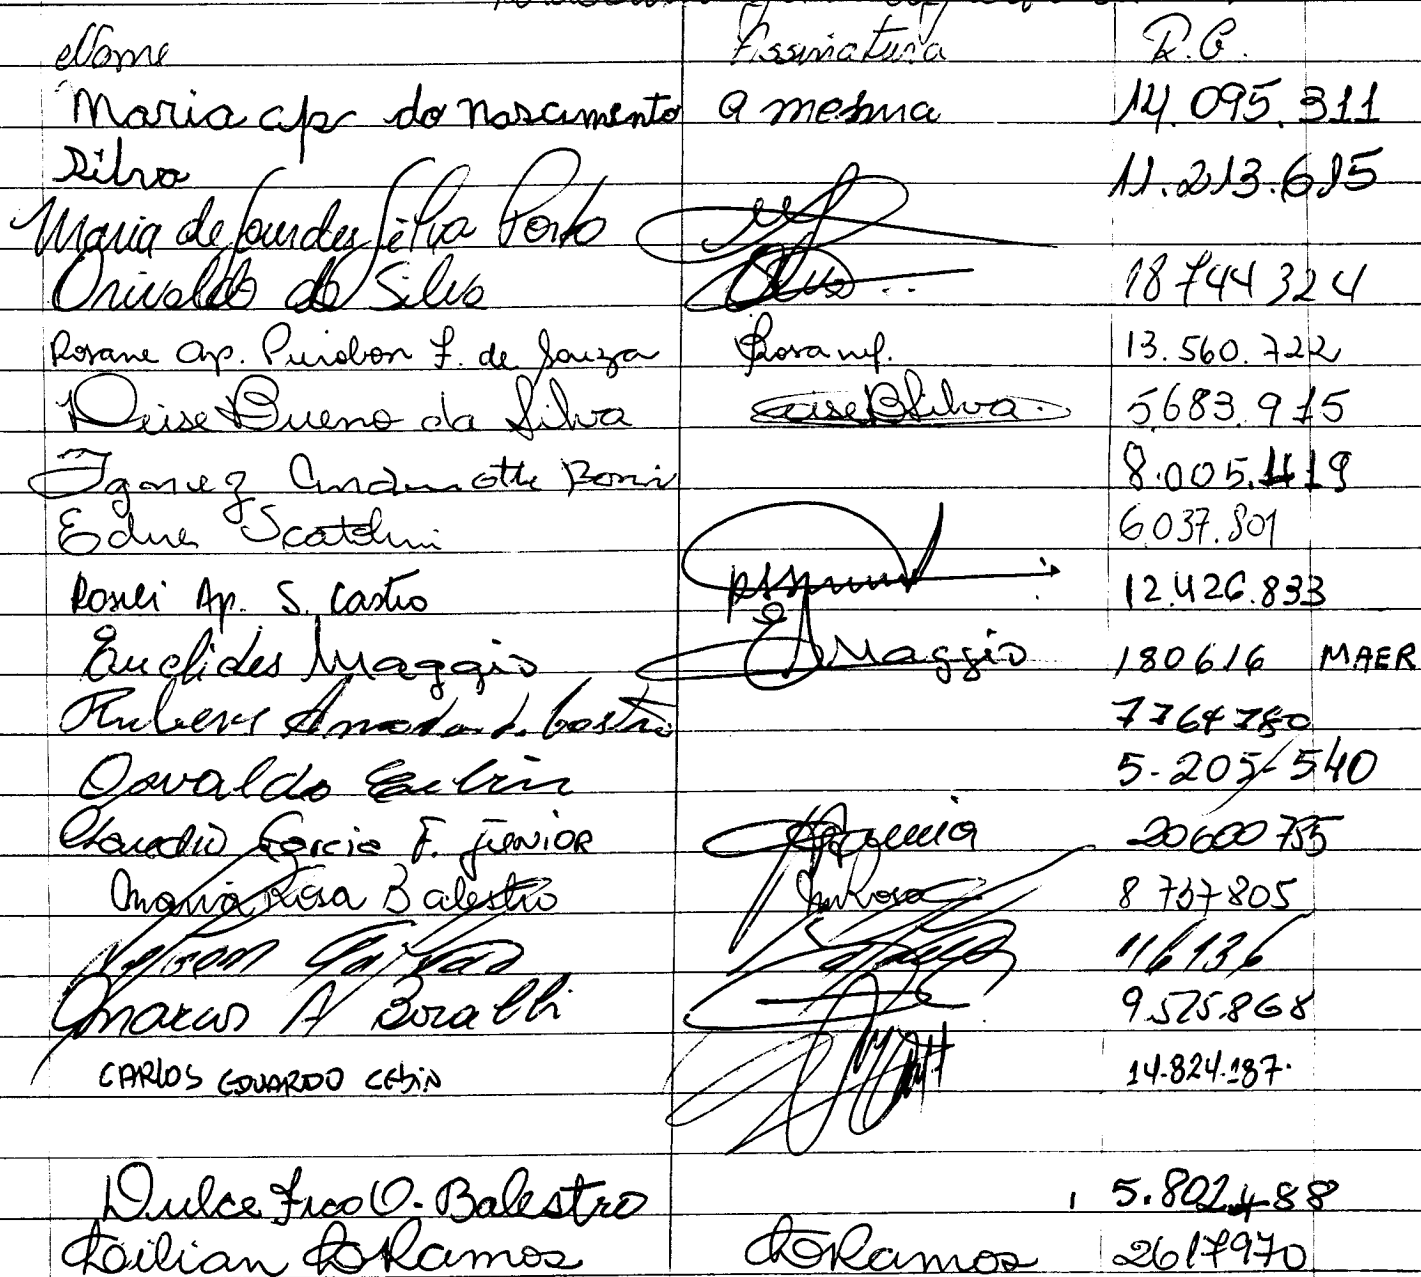 Nome Assinatura R.G.
Maria ap do nascimento a mesma 14.095.311
Silva 11.213.615
Maria de Lourdes Silva Porto
Orivaldo da Silva 18744324
Rosane ap. F. de Souza 13.560.722
Deise Bueno da Silva DeiseBSilva. 5683.915
8.005.119
Edna Scatolini 6.037.801
Roseli Ap. S. Castro 12.426.833
Euclides Maggio EMaggio 180616 MAER
Rubens de Castro 7764780
Osvaldo 5.205.540
Claudio Garcia F. JUNIOR 20600755
Maria Rosa Balestro MRosa 8737805
Nelson Galvão 116136
Marcus A Boralli 9.575.868
CARLOS EDUARDO CEBIN 14.824.187.
Dulce Fico O. Balestro 5.802.488
Lilian Ramos Ramos 2617970